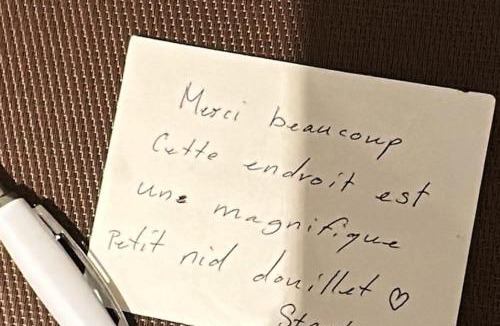 Merci beaucoup
Cette endroit est
une magnifique
Petit nid douillet ♡